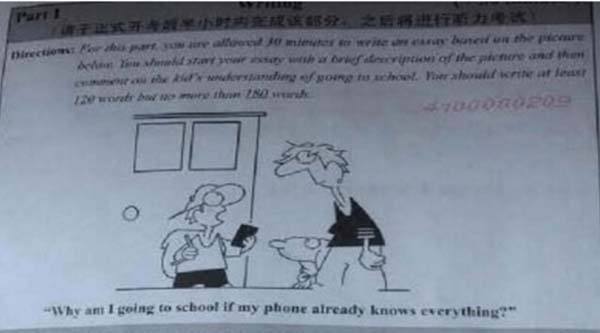 Part I Writing
(请于正式开考后半小时内完成该部分,之后将进行听力考试)
Directions: For this part, you are allowed 30 minutes to write an essay based on the picture
below. You should start your essay with a brief description of the picture and then
comment on the kid's understanding of going to school. You should write at least
120 words but no more than 180 words.
4100080209
"Why am I going to school if my phone already knows everything?"